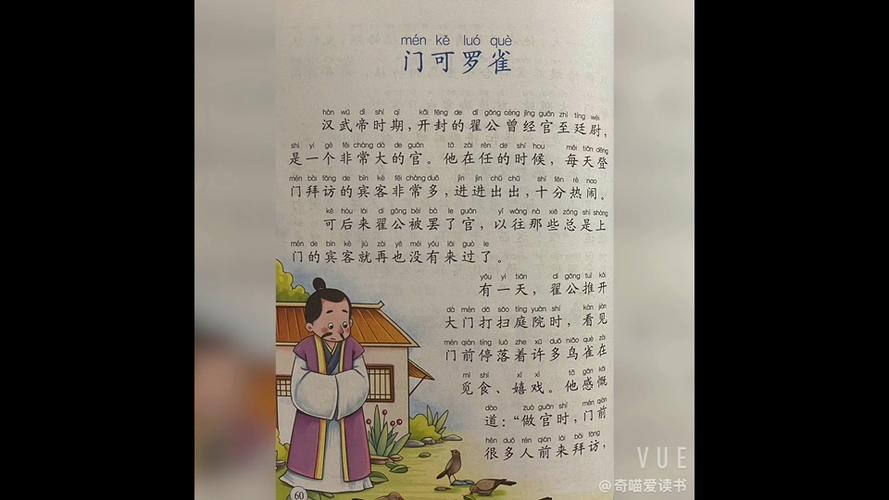 mén kě luó què
门可罗雀
hàn wǔ dì shí qī kāi fēng de dí gōng céng jīng guān zhì tíng wèi
汉武帝时期，开封的翟公曾经官至廷尉，
shì yí gè fēi cháng dà de guān tā zài rèn de shí hou měi tiān dēng
是一个非常大的官。他在任的时候，每天登
mén bài fǎng de bīn kè fēi cháng duō jìn jìn chū chū shí fēn rè nao
门拜访的宾客非常多，进进出出，十分热闹。
kě hòu lái dí gōng bèi bà le guān yǐ wǎng nà xiē zǒng shì shàng
可后来翟公被罢了官，以往那些总是上
mén de bīn kè jiù zài yě méi yǒu lái guò le
门的宾客就再也没有来过了。
yǒu yì tiān dí gōng tuī kāi
有一天，翟公推开
dà mén dǎ sǎo tíng yuàn shí kàn jiàn
大门打扫庭院时，看见
mén qián tíng luò zhe xǔ duō niǎo què zài
门前停落着许多鸟雀在
mì shí xī xì tā gǎn kǎi
觅食、嬉戏。他感慨
dào zuò guān shí mén qián
道：“做官时，门前
hěn duō rén qián lái bài fǎng
很多人前来拜访，
60
VUE
@奇喵爱读书